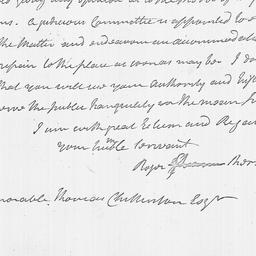 ns. a judicious Committee is appointed to
the Matter and endeavour an accommodat
repair to the place as soon as may be. I do
that you will use your authority and Infl
erve the public tranquility in the mean
I am with great Esteem and Regar
Your hu'ble Servant
Roger Sherman
onorable Thomas Chittenden Esqr